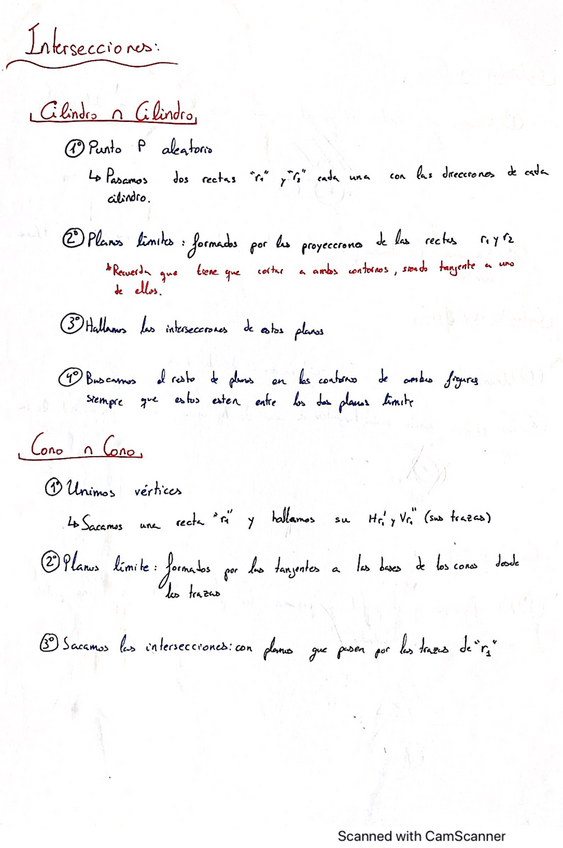 Intersecciones:
Cilindro ∩ Cilindro
1º Punto P aleatorio
↳ Pasamos dos rectas "r₁" y "r₂" cada una con las direcciones de cada
cilindro.
2º Planos límites: formados por las proyecciones de las rectas r₁ y r₂
*Recuerda que tiene que cortar a ambos contornos, siendo tangente a uno
de ellos.
3º Hallamos las intersecciones de estos planos
4º Buscamos el resto de planos en los contornos de ambas figuras
siempre que estos esten entre los dos planos límite
Cono ∩ Cono
1º Unimos vértices
↳ Sacamos una recta "r₁" y hallamos su Hr₁' y Vr₁" (sus trazas)
2º Planos límite: formados por las tangentes a las bases de los conos desde
las trazas
3º Sacamos las intersecciones: con planos que pasen por las trazas de "r₁"
Scanned with CamScanner